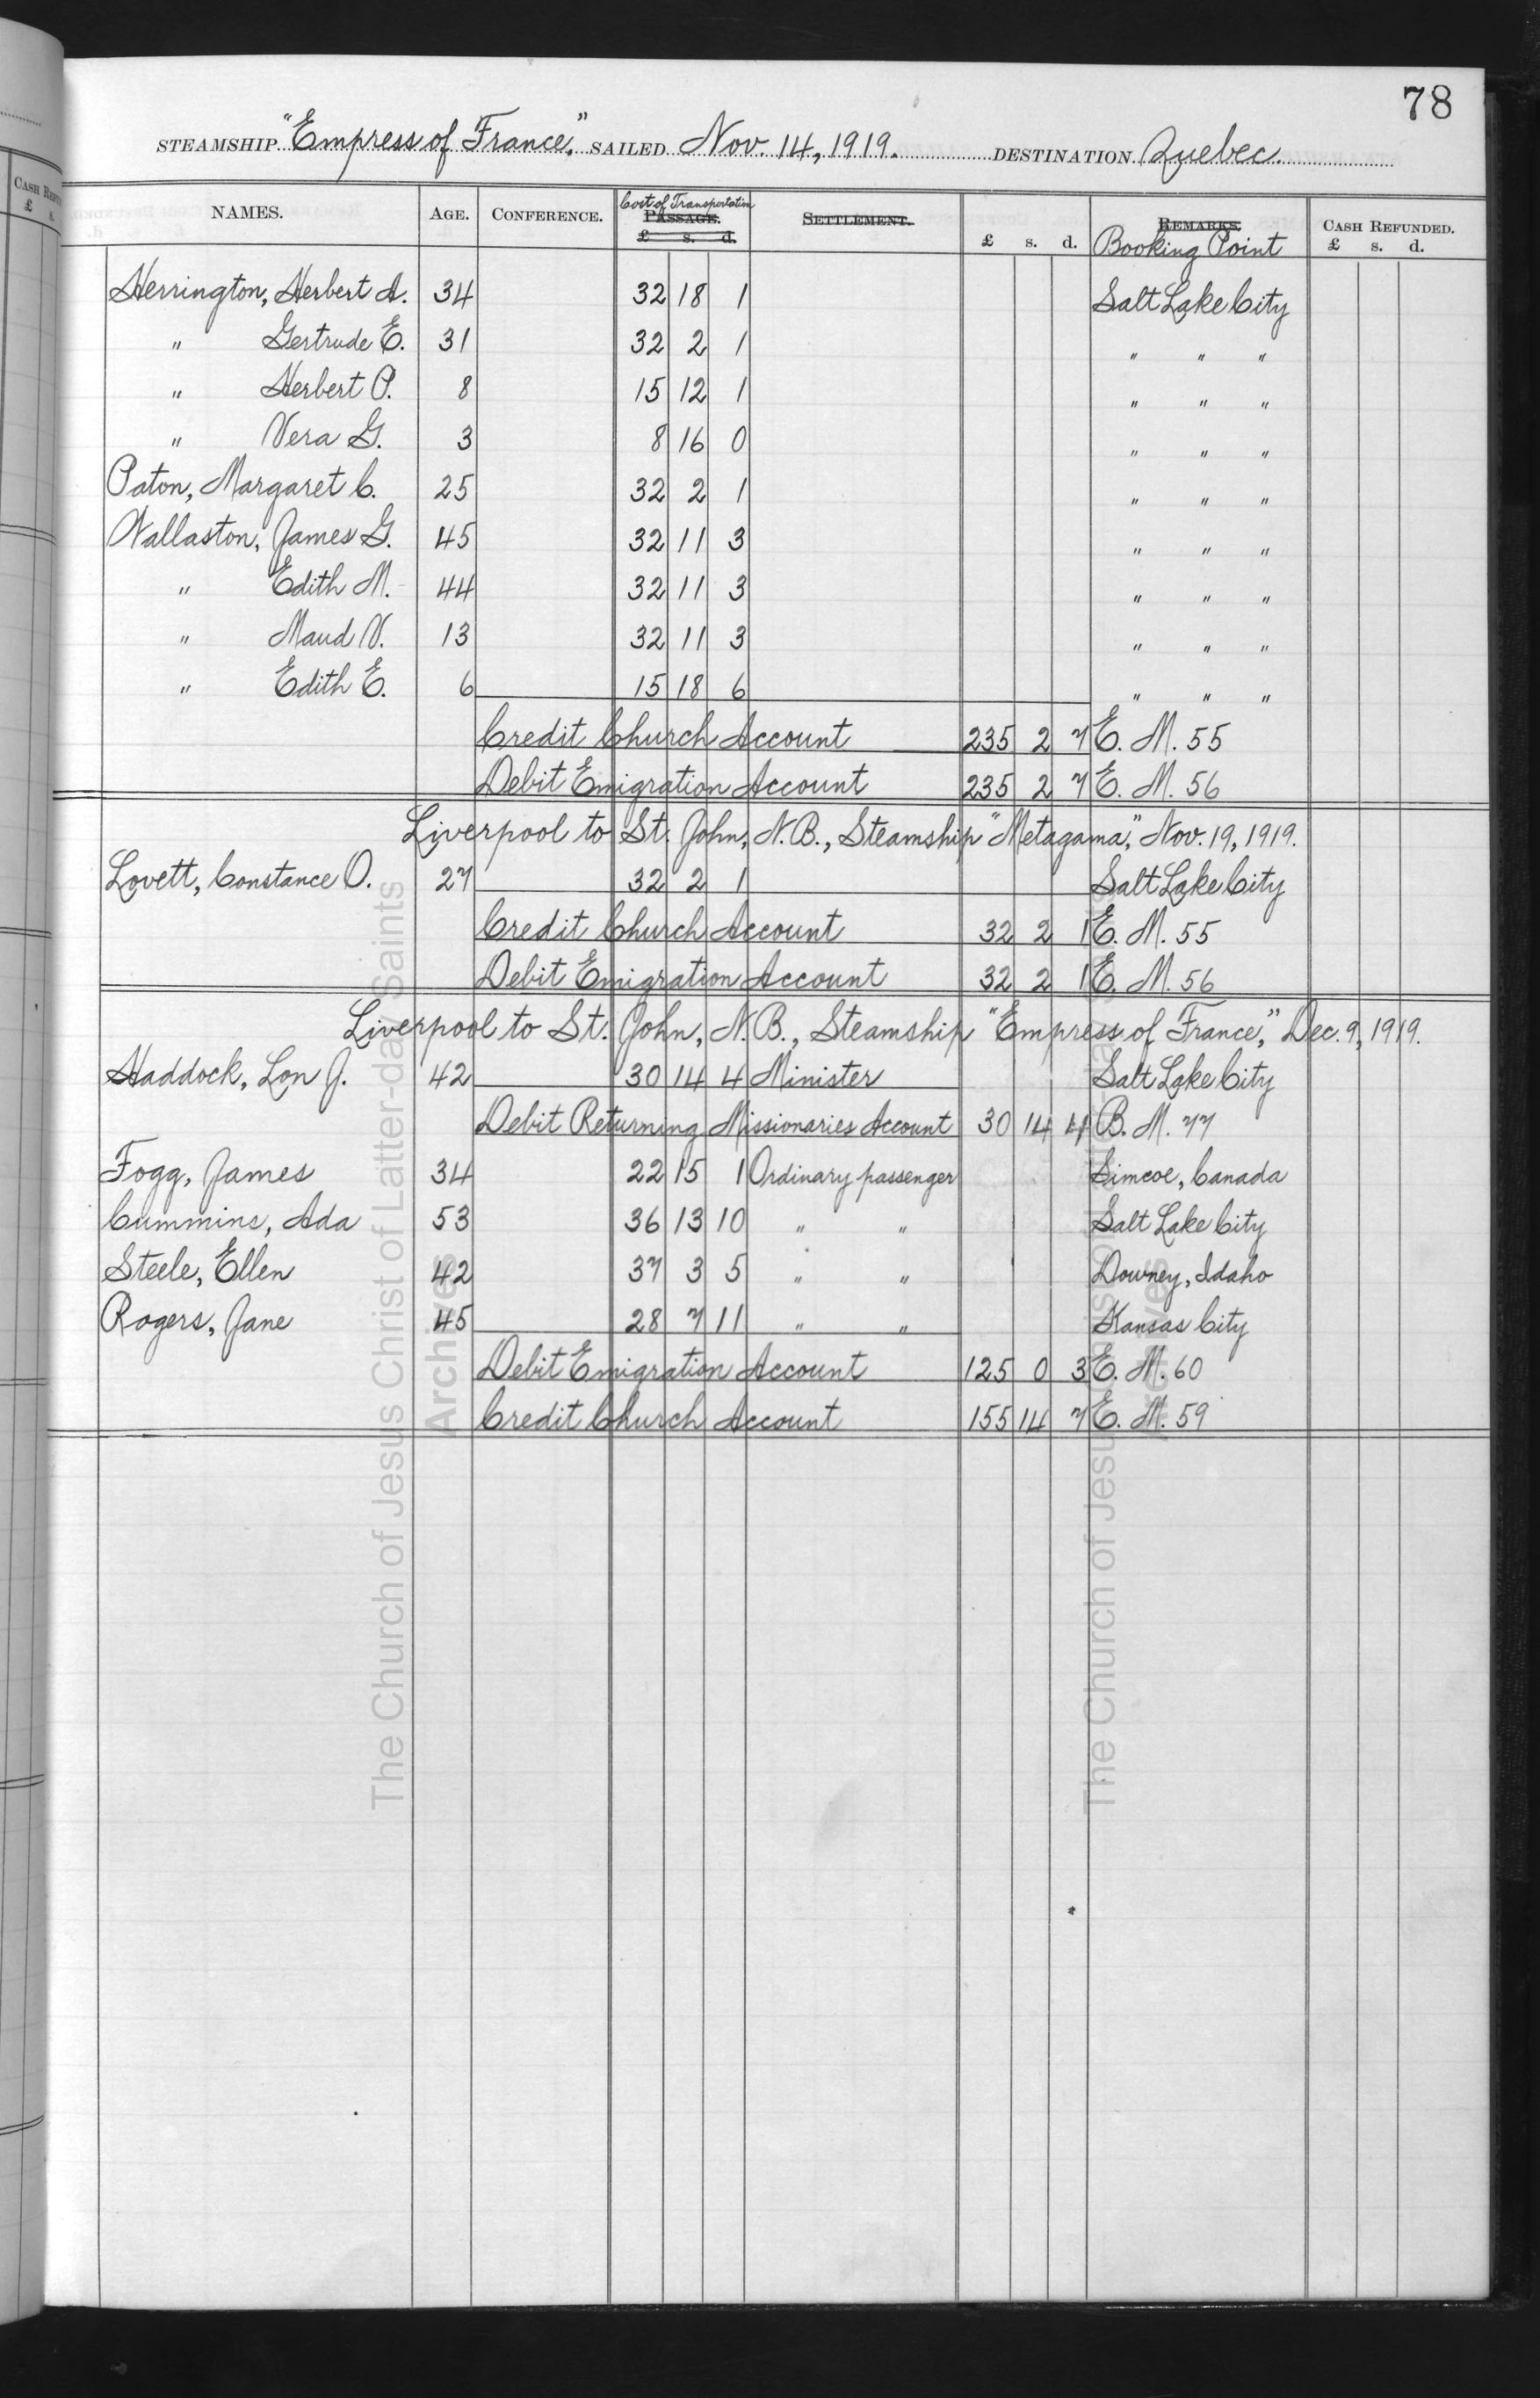 78
STEAMSHIP "Empress of France," SAILED Nov. 14, 1919. DESTINATION Quebec.
NAMES. AGE. CONFERENCE. Cost of Transportation PASSAGE. £ s. d. SETTLEMENT. £ s. d. REMARKS. Booking Point CASH REFUNDED. £ s. d.
Herrington, Herbert A. 34 32 18 1 Salt Lake City
" Gertrude E. 31 32 2 1 " " "
" Herbert P. 8 15 12 1 " " "
" Vera G. 3 8 16 0 " " "
Paton, Margaret C. 25 32 2 1 " " "
Wallaston, James G. 45 32 11 3 " " "
" Edith M. 44 32 11 3 " " "
" Maud V. 13 32 11 3 " " "
" Edith E. 6 15 18 6 " " "
Credit Church Account 235 2 7 E. M. 55
Debit Emigration Account 235 2 7 E. M. 56
Liverpool to St. John, N.B., Steamship "Metagama," Nov. 19, 1919.
Lovett, Constance O. 27 32 2 1 Salt Lake City
Credit Church Account 32 2 1 E. M. 55
Debit Emigration Account 32 2 1 E. M. 56
Liverpool to St. John, N.B., Steamship "Empress of France," Dec. 9, 1919.
Haddock, Lon J. 42 30 14 4 Minister Salt Lake City
Debit Returning Missionaries Account 30 14 4 B. M. 77
Fogg, James 34 22 15 1 Ordinary passenger Simcoe, Canada
Cummins, Ada 53 36 13 10 " " Salt Lake City
Steele, Ellen 42 37 3 5 " " Downey, Idaho
Rogers, Jane 45 28 7 11 " " Kansas City
Debit Emigration Account 125 0 3 E. M. 60
Credit Church Account 155 14 7 E. M. 59
The Church of Jesus Christ of Latter-day Saints
Archives
The Church of Jesus Christ of Latter-day Saints
Archives
CASH REFU
£ s.